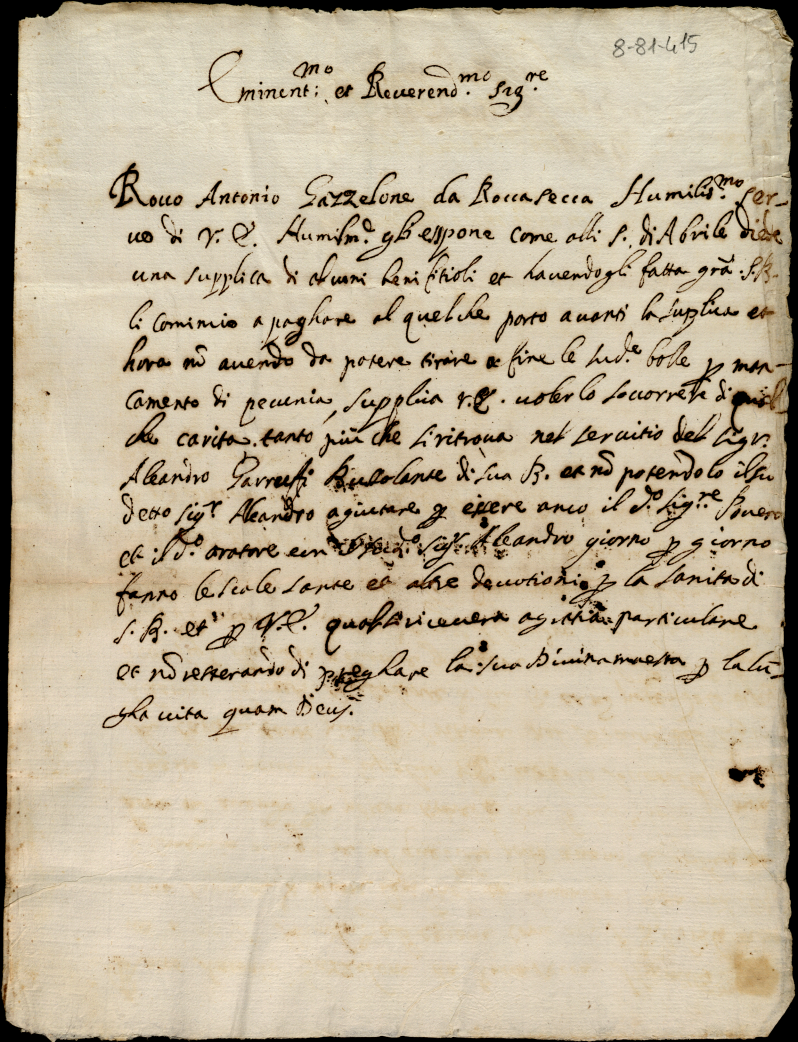 8-81-415
Eminent:mo et Reverend.mo Sig.re
Rocco Antonio Gazzelone da Roccasecca Humiliss.mo ser-
vo di V. E. Humilm.e gli espone come alli 5. di Aprile diede
una supplica di alcuni benifitioli et havendogli fatta gra. S. B.
li comincio a paghare al quelche porto avanti la supplica et
hora nō avendo da potere tirare a fine le sud.e bolle p man-
camento di pecunia, supplica V. E. volerlo soccorrere di qual
che carita. tanto più che si ritrova nel servitio del Sigr.
Aleandro Garruffi Bussolante di sua B. et nō potendolo il su
detto Sig.r Aleandro agiutare p essere anco il d.o Sig.re Povero
et il d.o oratore con d.o Sig.r Aleandro giorno p giorno
fanno le scale sante et altre devotioni p la sanita di
S. B. et p V. E. ricevera particulare
et nō resterando di preghare la sua Divina maesta p la lū-
gha vita quam Deus.